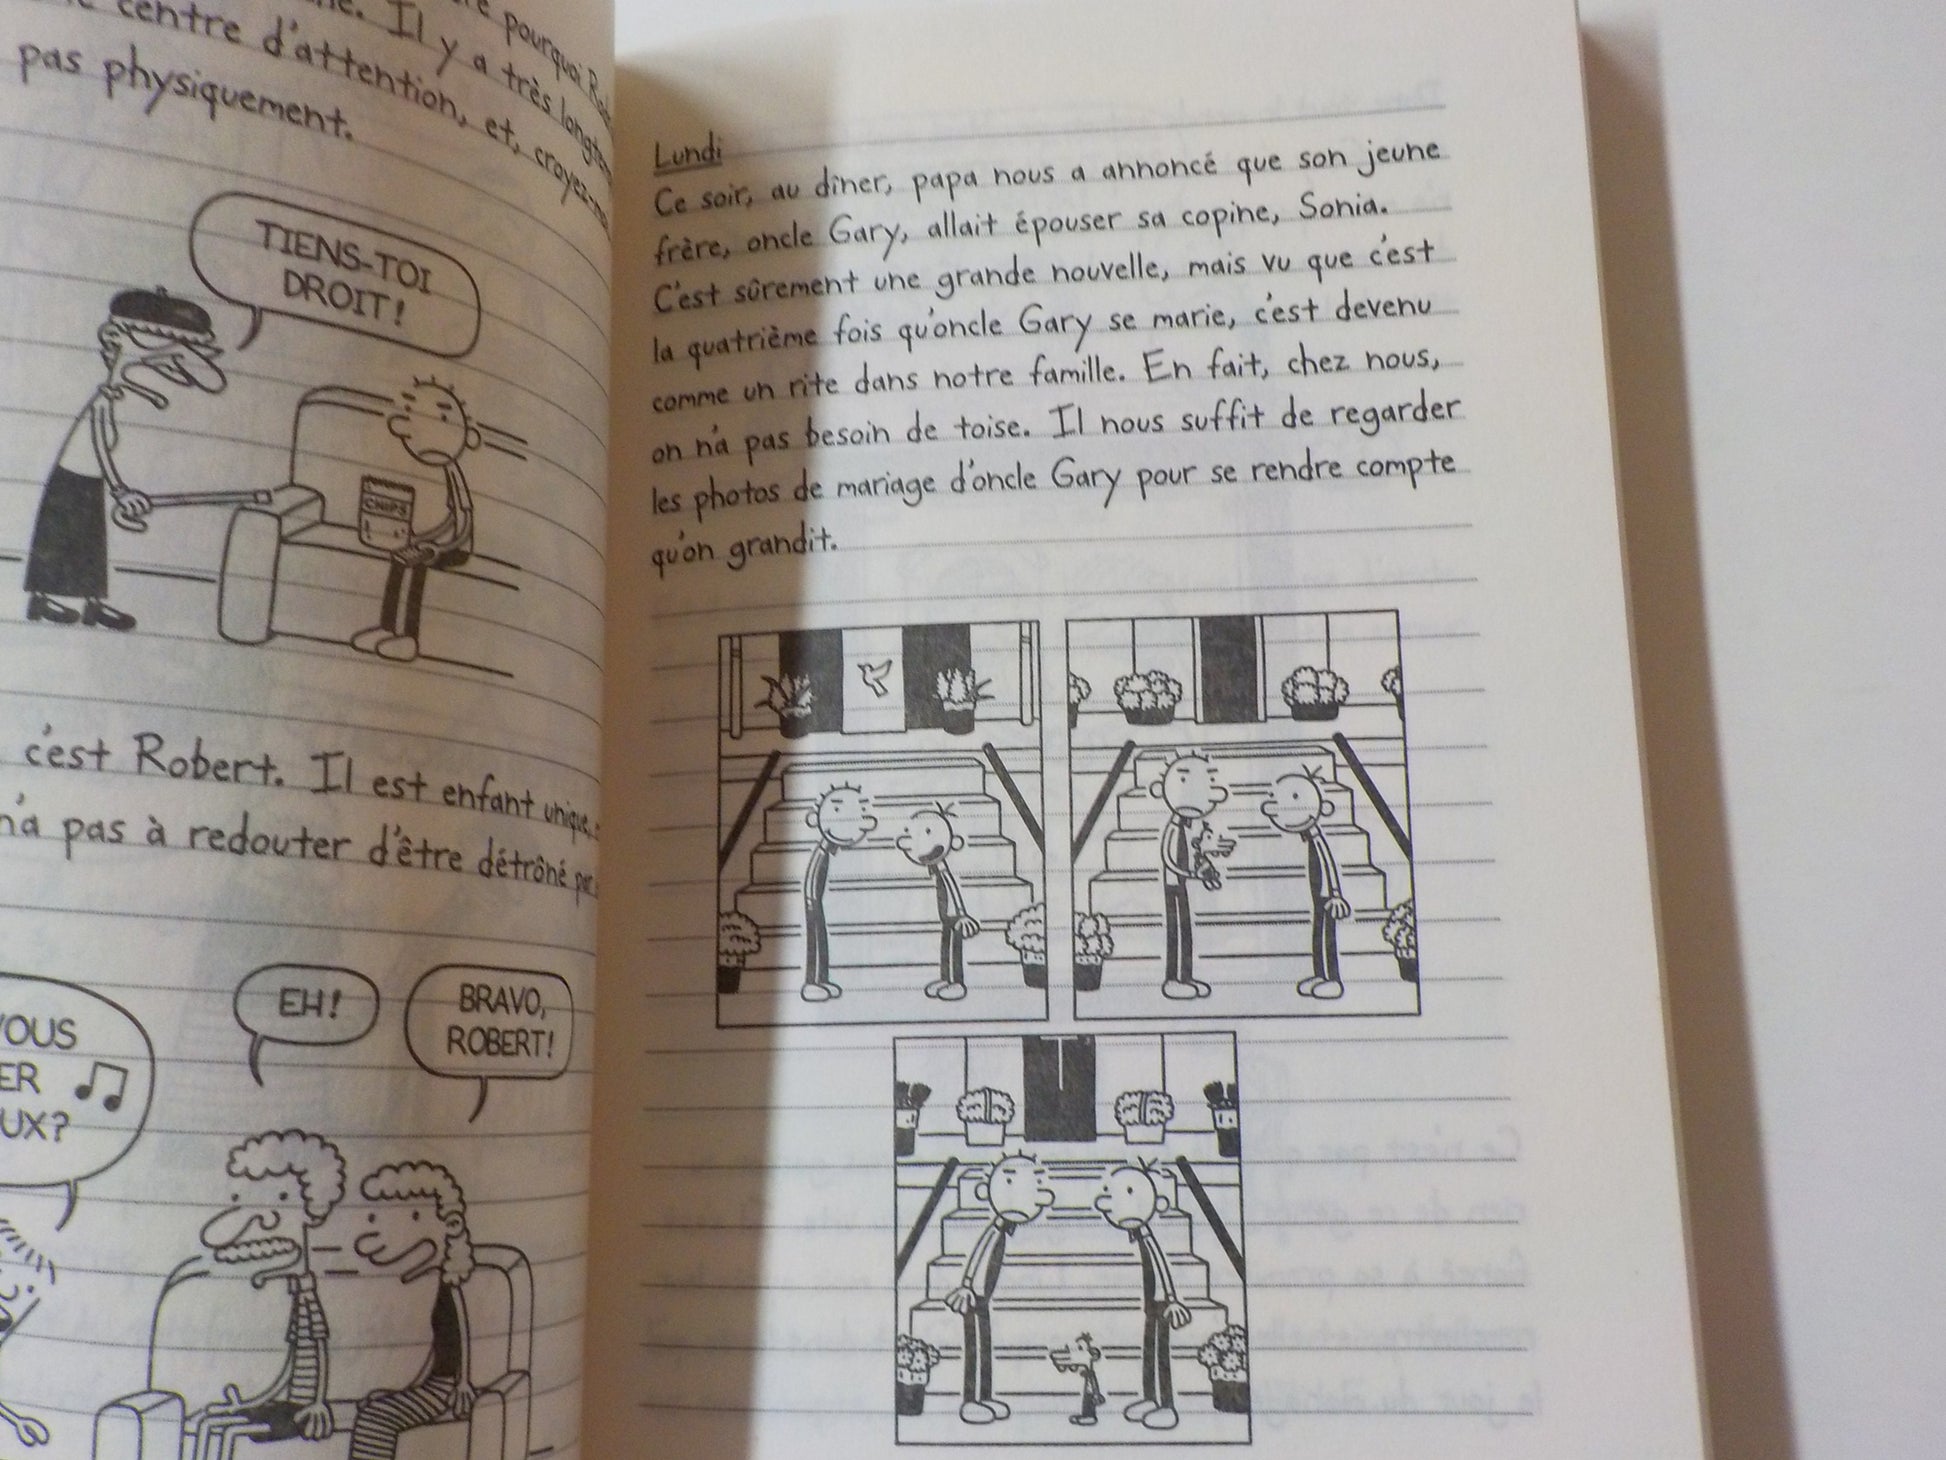 pourquoi
Il y a très
centre d'attention, et, croyez-moi
pas physiquement.
TIENS-TOI
DROIT!
CHIPS
c'est Robert. Il est enfant unique,
n'a pas à redouter d'être détrôné par
VOUS
EH!
BRAVO,
ROBERT!
Lundi
Ce soir, au dîner, papa nous a annoncé que son jeune
frère, oncle Gary, allait épouser sa copine, Sonia.
C'est sûrement une grande nouvelle, mais vu que c'est
la quatrième fois qu'oncle Gary se marie, c'est devenu
comme un rite dans notre famille. En fait, chez nous,
on n'a pas besoin de toise. Il nous suffit de regarder
les photos de mariage d'oncle Gary pour se rendre compte
qu'on grandit.